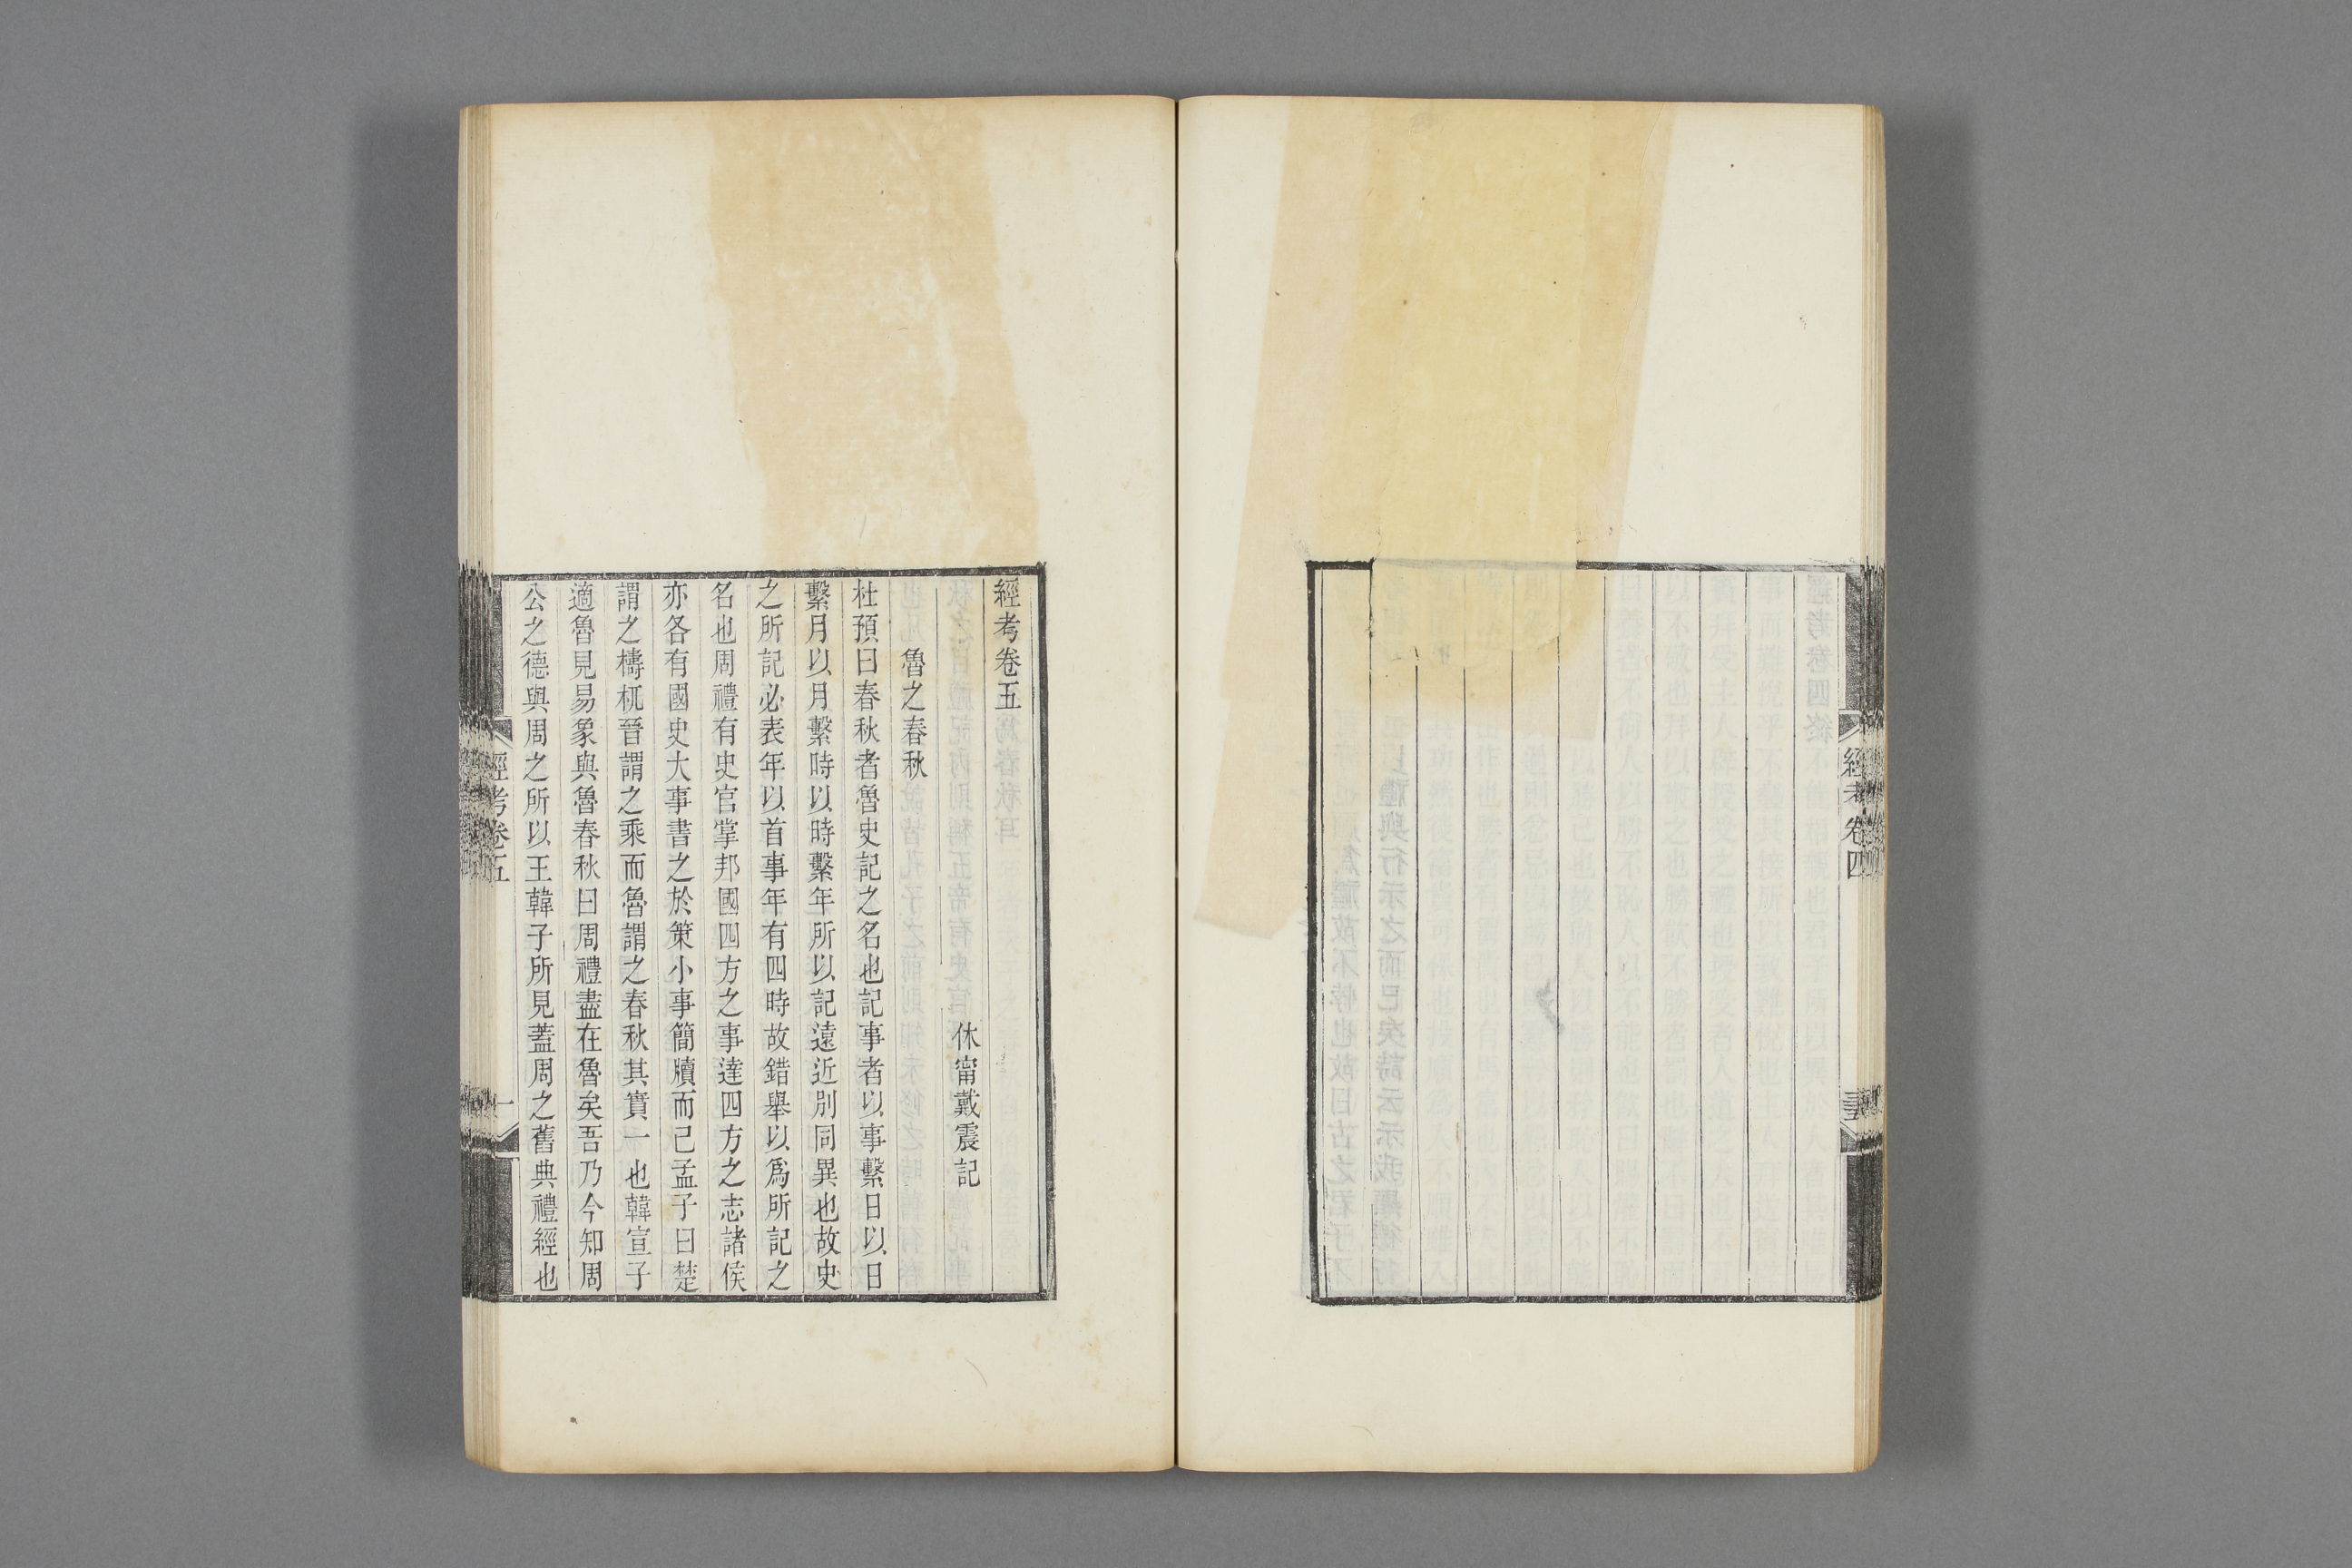 經考卷四
經考卷五
休甯戴震記
魯之春秋
杜預曰春秋者魯史記之名也記事者以事繫日以日
繫月以月繫時以時繫年所以記遠近別同異也故史
之所記必表年以首事年有四時故錯舉以爲所記之
名也周禮有史官掌邦國四方之事達四方之志諸侯
亦各有國史大事書之於策小事簡牘而己孟子曰楚
謂之檮杌晉謂之乘而魯謂之春秋其實一也韓宣子
適魯見易象與魯春秋曰周禮盡在魯矣吾乃今知周
公之德與周之所以王韓子所見蓋周之舊典禮經也
經考卷五
一